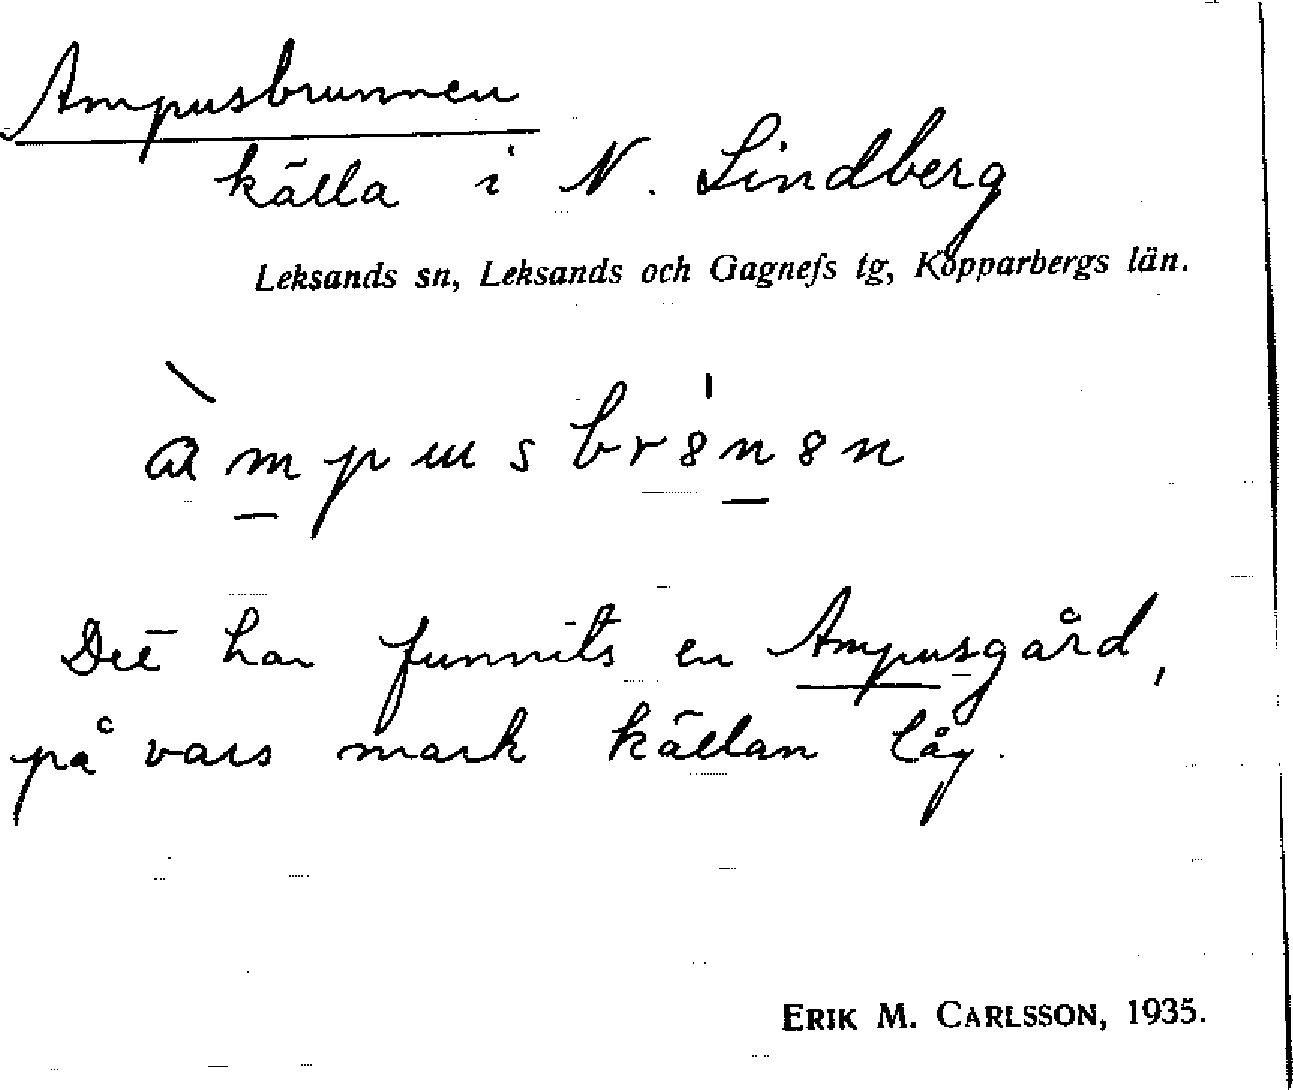 Ampusbrunnen
källa i N. Lindberg
Leksands sn, Leksands och Gagnefs tg, Kopparbergs län.
Det har funnits en Ampusgård,
på vars mark källan låg.
ERIK M. CARLSSON, 1935.